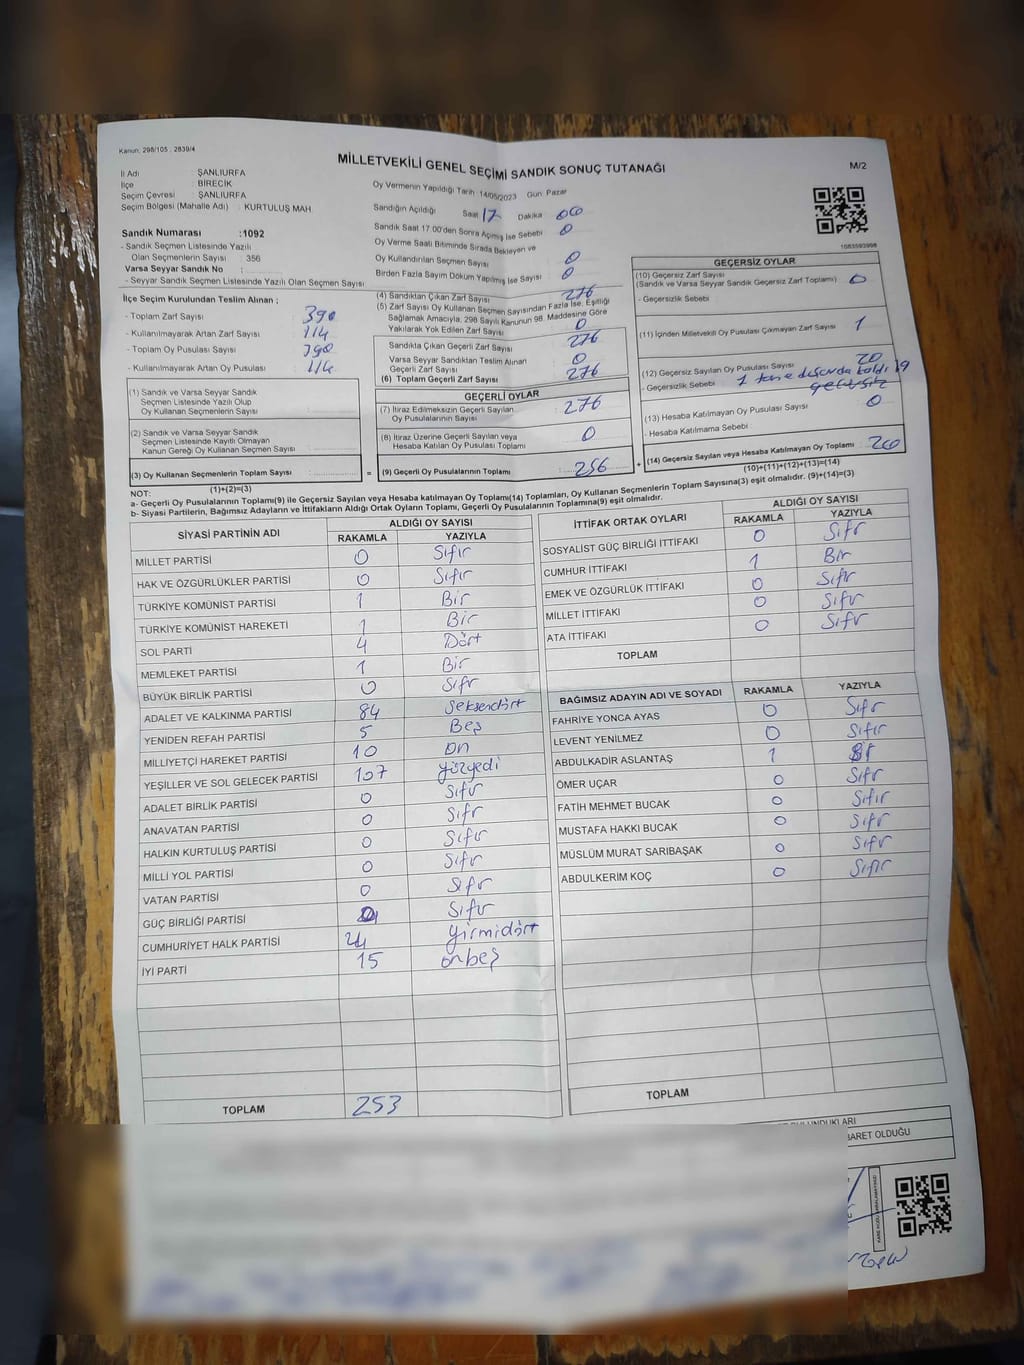 Kanun: 298/105 ; 2839/4
MİLLETVEKİLİ GENEL SEÇİMİ SANDIK SONUÇ TUTANAĞI
M/2
İl Adı : ŞANLIURFA
İlçe : BİRECİK
Seçim Çevresi : ŞANLIURFA
Seçim Bölgesi (Mahalle Adı) : KURTULUŞ MAH
Sandık Numarası : 1092
- Sandık Seçmen Listesinde Yazılı
Olan Seçmenlerin Sayısı : 356
Varsa Seyyar Sandık No :
- Seyyar Sandık Seçmen Listesinde Yazılı Olan Seçmen Sayısı
Oy Vermenin Yapıldığı Tarih: 14/05/2023 Gün: Pazar
Sandığın Açıldığı Saat 17 Dakika 00
Sandık Saat 17.00'den Sonra Açılmış İse Sebebi 0
Oy Verme Saati Bitiminde Sırada Bekleyen ve
Oy Kullandırılan Seçmen Sayısı 0
Birden Fazla Sayım Döküm Yapılmış İse Sayısı 0
1083593998
İlçe Seçim Kurulundan Teslim Alınan ;
- Toplam Zarf Sayısı 390
- Kullanılmayarak Artan Zarf Sayısı 114
- Toplam Oy Pusulası Sayısı 390
- Kullanılmayarak Artan Oy Pusulası 114
(1) Sandık ve Varsa Seyyar Sandık
Seçmen Listesinde Yazılı Olup
Oy Kullanan Seçmenlerin Sayısı
(2) Sandık ve Varsa Seyyar Sandık
Seçmen Listesinde Kayıtlı Olmayan
Kanun Gereği Oy Kullanan Seçmen Sayısı
(3) Oy Kullanan Seçmenlerin Toplam Sayısı :
(1)+(2)=(3)
(4) Sandıktan Çıkan Zarf Sayısı 276
(5) Zarf Sayısı Oy Kullanan Seçmen Sayısından Fazla İse, Eşitliği
Sağlamak Amacıyla, 298 Sayılı Kanunun 98. Maddesine Göre
Yakılarak Yok Edilen Zarf Sayısı 0
Sandıkta Çıkan Geçerli Zarf Sayısı 276
Varsa Seyyar Sandıktan Teslim Alınan
Geçerli Zarf Sayısı 0
(6) Toplam Geçerli Zarf Sayısı 276
GEÇERLİ OYLAR
(7) İtiraz Edilmeksizin Geçerli Sayılan
Oy Pusulalarının Sayısı 276
(8) İtiraz Üzerine Geçerli Sayılan veya
Hesaba Katılan Oy Pusulası Toplamı 0
= (9) Geçerli Oy Pusulalarının Toplamı : 256 +
GEÇERSİZ OYLAR
(10) Geçersiz Zarf Sayısı
(Sandık ve Varsa Seyyar Sandık Geçersiz Zarf Toplamı) 0
- Geçersizlik Sebebi
(11) İçinden Milletvekili Oy Pusulası Çıkmayan Zarf Sayısı 1
(12) Geçersiz Sayılan Oy Pusulası Sayısı 20
- Geçersizlik Sebebi 1 tane dışarıda kaldı 19
geçersiz
(13) Hesaba Katılmayan Oy Pusulası Sayısı 0
- Hesaba Katılmama Sebebi :
(14) Geçersiz Sayılan veya Hesaba Katılmayan Oy Toplamı : 20
(10)+(11)+(12)+(13)=(14)
NOT:
a- Geçerli Oy Pusulalarının Toplamı(9) ile Geçersiz Sayılan veya Hesaba katılmayan Oy Toplamı(14) Toplamları, Oy Kullanan Seçmenlerin Toplam Sayısına(3) eşit olmalıdır. (9)+(14)=(3)
b- Siyasi Partilerin, Bağımsız Adayların ve İttifakların Aldığı Ortak Oyların Toplamı, Geçerli Oy Pusulalarının Toplamına(9) eşit olmalıdır.
SİYASİ PARTİNİN ADI ALDIĞI OY SAYISI
RAKAMLA YAZIYLA
MİLLET PARTİSİ 0 Sıfır
HAK VE ÖZGÜRLÜKLER PARTİSİ 0 Sıfır
TÜRKİYE KOMÜNİST PARTİSİ 1 Bir
TÜRKİYE KOMÜNİST HAREKETİ 1 Bir
SOL PARTİ 4 Dört
MEMLEKET PARTİSİ 1 Bir
BÜYÜK BİRLİK PARTİSİ 0 Sıfr
ADALET VE KALKINMA PARTİSİ 84 Seksendört
YENİDEN REFAH PARTİSİ 5 Beş
MİLLİYETÇİ HAREKET PARTİSİ 10 On
YEŞİLLER VE SOL GELECEK PARTİSİ 107 yüzyedi
ADALET BİRLİK PARTİSİ 0 Sıfır
ANAVATAN PARTİSİ 0 Sıfr
HALKIN KURTULUŞ PARTİSİ 0 Sıfır
MİLLİ YOL PARTİSİ 0 Sıfr
VATAN PARTİSİ 0 Sıfr
GÜÇ BİRLİĞİ PARTİSİ Sıfır
CUMHURİYET HALK PARTİSİ 24 yirmidört
İYİ PARTİ 15 onbeş
TOPLAM 253
İTTİFAK ORTAK OYLARI ALDIĞI OY SAYISI
RAKAMLA YAZIYLA
SOSYALİST GÜÇ BİRLİĞİ İTTİFAKI 0 Sıfr
CUMHUR İTTİFAKI 1 Bir
EMEK VE ÖZGÜRLÜK İTTİFAKI 0 Sıfr
MİLLET İTTİFAKI 0 Sıfr
ATA İTTİFAKI 0 Sıfr
TOPLAM
BAĞIMSIZ ADAYIN ADI VE SOYADI RAKAMLA YAZIYLA
FAHRİYE YONCA AYAS 0 Sıfr
LEVENT YENİLMEZ 0 Sıfır
ABDULKADİR ASLANTAŞ 1
ÖMER UÇAR 0 Sıfr
FATİH MEHMET BUCAK 0 Sıfır
MUSTAFA HAKKI BUCAK 0 Sıfr
MÜSLÜM MURAT SARIBAŞAK 0 Sıfr
ABDULKERİM KOÇ 0 Sıfır
TOPLAM
BARET OLDUĞU